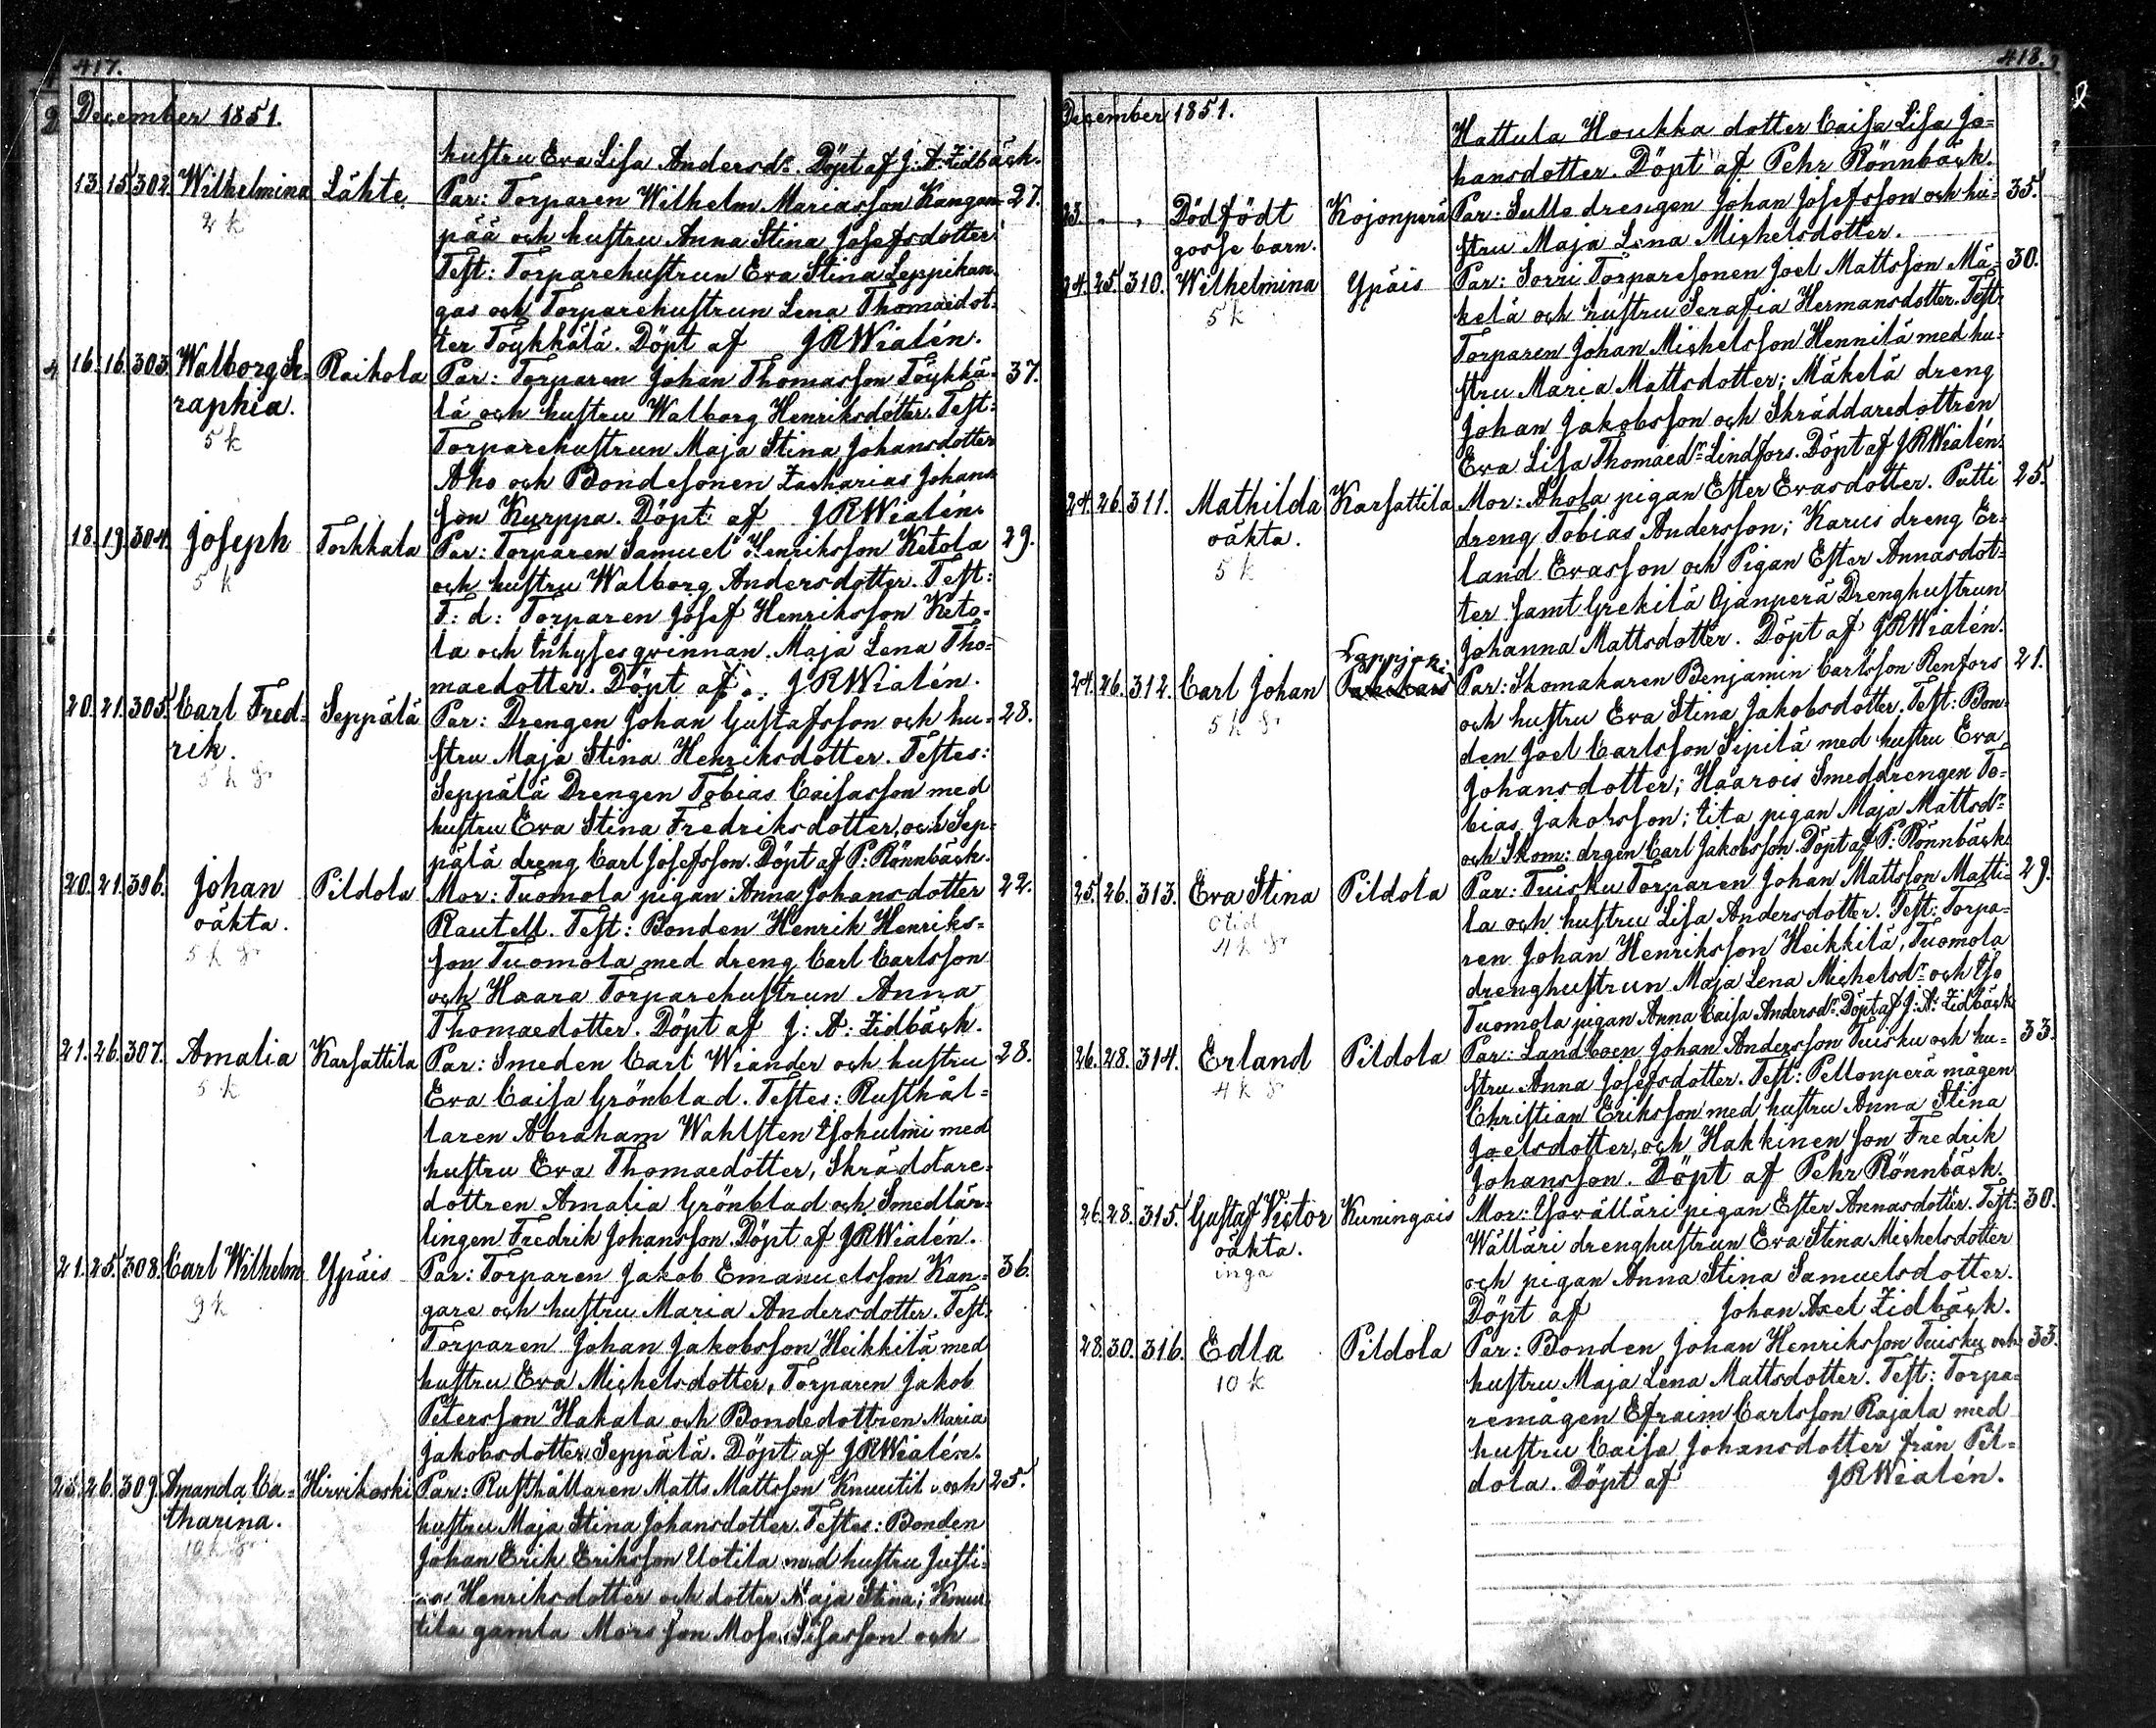 417.
December 1851.
huſtru Eva Liſa Andersdr. Döpt af J. A. Zidbäck.
13. 15. 302. Wilhelmina Lähte Par: Torparen Wilhelm Mariasſon Kangan- 27.
2 k pää och huſtru Anna Stina Joſefsdotter.
Teſt: Torparehuſtrun Eva Stina Leppikan-
gas och Torparehuſtrun Lena Thomaedot-
ter Töykkälä. Döpt af JRWialén.
16. 16. 303. Walborg Se- Raikola Par: Torparen Johan Thomasſon Töykkä- 37.
raphia. lä och huſtru Walborg Henriksdotter. Teſt:
5 k Torparehuſtrun Maja Stina Johansdotter
Aho och Bondeſonen Zacharias Johans-
ſon Kurppa. Döpt af JRWialén.
18. 19. 304. Joſeph Torkkala Par: Torparen Samuel Henriksſon Ketola 29.
5 k och huſtru Walborg Andersdotter. Teſt:
F: d: Torparen Joſef Henriksſon Keto-
la och Inhyſesqvinnan Maja Lena Tho-
maedotter. Döpt af JRWialén.
20. 21. 305. Carl Fred- Seppälä Par: Drengen Johan Guſtafsſon och hu- 28.
rik. ſtru Maja Stina Henriksdotter. Teſtes:
5 k Seppälä Drengen Tobias Caiſasſon med
huſtru Eva Stina Fredriksdotter, och Sep-
pälä dreng Carl Joſefsſon. Döpt af P: Rönnbäck.
20. 21. 306. Johan Pildola Mor: Tuomola pigan Anna Johansdotter 22.
oäkta. Rautell. Teſt: Bonden Henrik Henriks-
5 k ſon Tuomola med dreng Carl Carlsſon
och Haara Torparehuſtrun Anna
Thomaedotter. Döpt af J: A: Zidbäck.
21. 26. 307. Amalia Karſattila Par: Smeden Carl Wiander och huſtru 28.
5 k Eva Caiſa Grönblad. Teſtes: Ruſthål-
laren Abraham Wahlſten Iſohulmi med
huſtru Eva Thomaedotter, Skräddare-
dottren Amalia Grönblad och Smedlär-
lingen Fredrik Johansſon. Döpt af JRWialén.
21. 25. 308. Carl Wilhelm Ypäis Par: Torparen Jakob Emanuelsſon Kan- 36.
9 k gare och huſtru Maria Andersdotter. Teſt:
Torparen Johan Jakobsſon Heikkilä med
huſtru Eva Michelsdotter, Torparen Jakob
Petersſon Hakala och Bondedottren Maria
Jakobsdotter Seppälä. Döpt af JRWialén.
25. 26. 309. Amanda Ca- Hirvikoski Par: Ruſthållaren Matts Mattsſon Knuutila och 25.
tharina. huſtru Maja Stina Johansdotter. Teſtes: Bonden
10 k Johan Erik Eriksſon Uotila med huſtru Juſti-
na Henriksdotter och dotter Maja Stina; Knuu-
tila gamla Mors ſon Moſes Liſasſon och
418.
December 1851.
Hattula Houkka dotter Caiſa Liſa Jo-
hansdotter. Döpt af Pehr Rönnbäck.
23. Dödfödt Kojonperä Par: Sullo drengen Johan Joſefsſon och hu- 35.
goſſe barn. ſtru Maja Lena Michelsdotter.
24. 25. 310. Wilhelmina Ypäis Par: Sorri Torpareſonen Joel Mattsſon Mä- 30.
5 k kelä och huſtru Serafia Hermansdotter. Teſt:
Torparen Johan Michelsſon Hennilä med hu-
ſtru Maria Mattsdotter; Mäkelä dreng
Johan Jakobsſon och Skräddaredottren
Eva Liſa Thomaedr Lindfors. Döpt af JRWialén.
24. 26. 311. Mathilda Karſattila Mor: Ahola pigan Eſter Evasdotter. Putti 25.
oäkta. dreng Tobias Andersſon; Karus dreng Er-
5 k land Evasſon och Pigan Eſter Annasdot-
ter ſamt Grekilä Ojanperä Drenghuſtrun
Johanna Mattsdotter. Döpt af JRWialén.
Lappjoki
24. 26. 312. Carl Johan Par: Skomakaren Benjamin Carlsſon Renfors 21.
5 k och huſtru Eva Stina Jakobsdotter. Teſt: Bon-
den Joel Carlsſon Sipilä med huſtru Eva
Johansdotter; Haarois Smeddrengen To-
bias Jakobsſon; pigan Maja Mattsdr
och Skom: drgen Carl Jakobsſon. Döpt af P: Rönnbäck.
25. 26. 313. Eva Stina Pildola Par: Tuisku Torparen Johan Mattsſon Matti- 29.
4 k la och huſtru Liſa Andersdotter. Teſt: Torpa-
ren Johan Henriksſon Heikkilä, Tuomola
drenghuſtrun Maja Lena Michelsdr och Iſo
Tuomola pigan Anna Caiſa Andersdr. Döpt af J: A: Zidbäck.
26. 28. 314. Erland Pildola Par: Landboen Johan Andersſon Tuisku och hu- 33.
4 k ſtru Anna Joſefsdotter. Teſt: Pellonperä mågen
Chriſtian Eriksſon med huſtru Anna Stina
Joelsdotter, och Hakkinen ſon Fredrik
Johansſon. Döpt af Pehr Rönnbäck.
26. 28. 315. Guſtaf Victor Kuningais Mor: Yſovälläri pigan Eſter Annasdotter. Teſt: 30.
oäkta. Wälläri drenghuſtrun Eva Stina Michelsdotter
inga och pigan Anna Stina Samuelsdotter.
Döpt af Johan Axel Zidbäck.
28. 30. 316. Edla Pildola Par: Bonden Johan Henriksſon Tuisku och 33.
10 k huſtru Maja Lena Mattsdotter. Teſt: Torpa-
remågen Efraim Carlsſon Rajala med
huſtru Caiſa Johansdotter från Pil-
dola. Döpt af JRWialén.